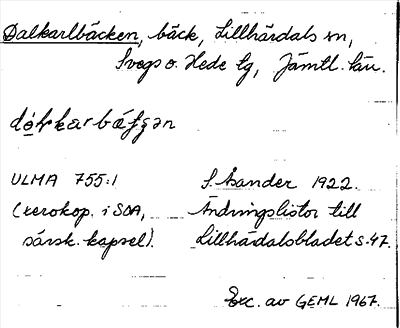 Dalkarlbäcken, bäck, Lillhärdals sn,
Svegs o. Hede tg, Jämtl. län.
ULMA 755:1 S. Asander 1922.
(xerokop. i SOA, Ändringslistor till
särsk. kapsel). Lillhärdalsbladet s. 47.
Exc. av GEML 1967.